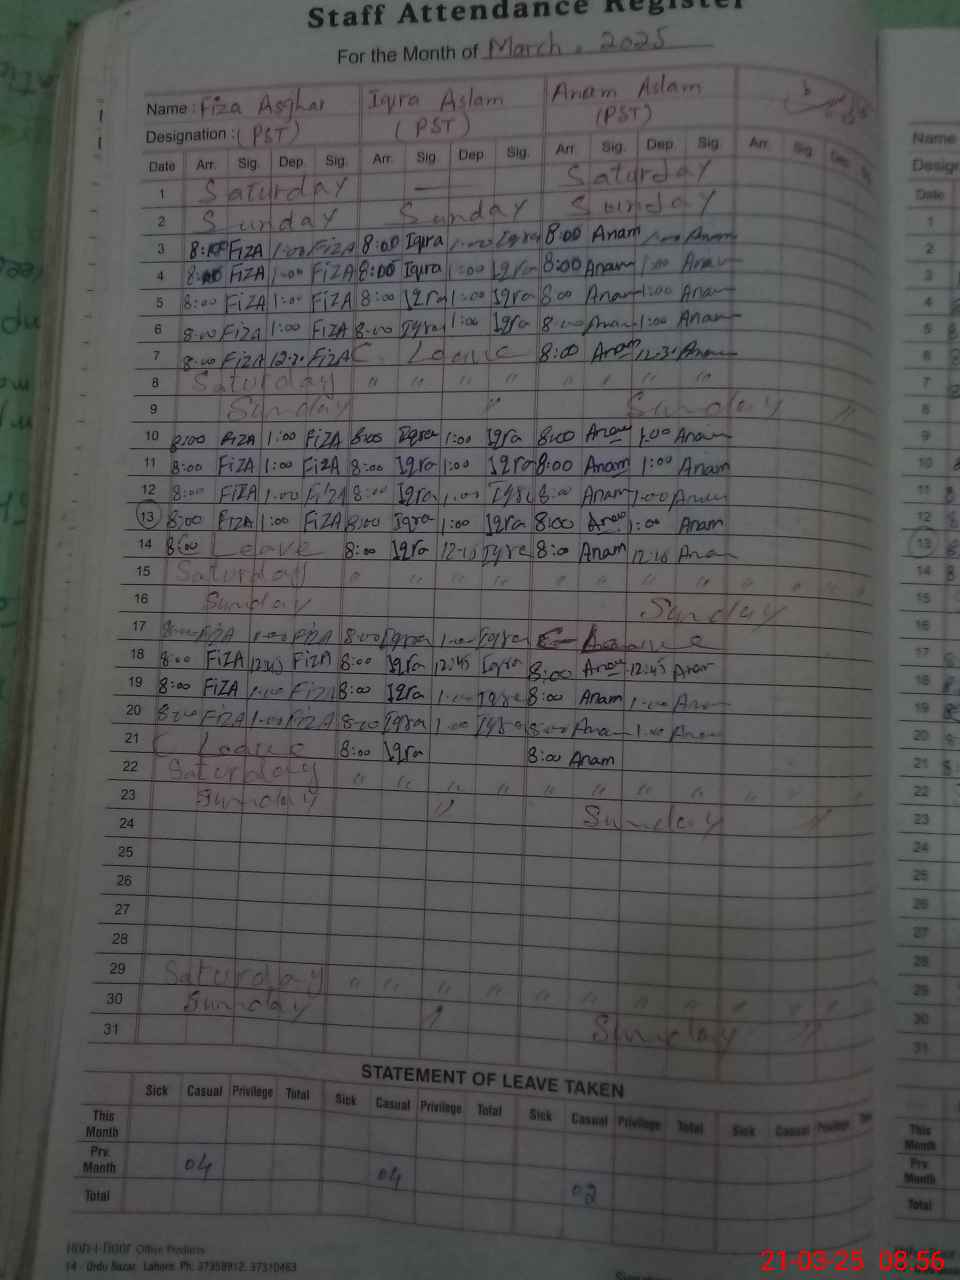 Staff Attendance Register
For the Month of March, 2025
Name : Fiza Asghar Iqra Aslam Anam Aslam
Designation : (PST) (PST) (PST)
Date Arr. Sig. Dep. Sig. Arr. Sig. Dep. Sig. Arr. Sig. Dep. Sig. Arr. Sig. Dep.
1 Saturday — Saturday
2 Sunday Sunday Sunday
3 FiZA 1:00 FiZA 8:00 Iqra 1:00 Iqra 8:00 Anam 1:00 Anam
4 FiZA 1:00 FiZA 8:00 Iqra 1:00 Iqra 8:00 Anam 1:00 Anam
5 8:00 FiZA 1:00 FiZA 8:00 Iqra 1:00 Iqra 8:00 Anam 1:00 Anam
6 8:00 FiZA 1:00 FiZA 8:00 Iqra 1:00 Iqra 8:00 Anam 1:00 Anam
7 8:00 FiZA 12:30 FiZA C. Leave 8:00 Anam 12:30 Anam
8 Saturday " " " " " " " "
9 Sunday " Sunday "
10 8:00 FiZA 1:00 FiZA 8:00 Iqra 1:00 Iqra 8:00 Anam 1:00 Anam
11 8:00 FiZA 1:00 FiZA 8:00 Iqra 1:00 Iqra 8:00 Anam 1:00 Anam
12 8:00 FiZA 1:00 FiZA 8:00 Iqra 1:00 Iqra 8:00 Anam 1:00 Anam
13 8:00 FiZA 1:00 FiZA 8:00 Iqra 1:00 Iqra 8:00 Anam 1:00 Anam
14 Leave 8:00 Iqra Iqra 8:00 Anam Anam
15 Saturday " " " " " " " " " "
16 Sunday Sunday
17 8:00 FiZA 1:00 FiZA 8:00 Iqra 1:00 Iqra C-Leave
18 8:00 FiZA 12:45 FiZA 8:00 Iqra 12:45 Iqra 8:00 Anam 12:45 Anam
19 8:00 FiZA 1:00 FiZA 8:00 Iqra 1:00 Iqra 8:00 Anam 1:00 Anam
20 8:00 FiZA 1:00 FiZA 8:00 Iqra 1:00 Iqra 8:00 Anam 1:00 Anam
21 C Leave 8:00 Iqra 8:00 Anam
22 Saturday " " " " " " " " "
23 Sunday " Sunday "
24
25
26
27
28
29 Saturday " " " " " " " " " "
30 Sunday " Sunday "
31
STATEMENT OF LEAVE TAKEN
Sick Casual Privilege Total Sick Casual Privilege Total Sick Casual Privilege Total Sick Casual Privilege
This Month
Prv. Month 04 04 02
Total
Office Products
14 - Urdu Bazar, Lahore. Ph: 37358912, 37310463
21-03-25 08:56
Name
Date
1
2
3
4
5
6
7
8
9
10
11
12
13
14
15
16
17
18
19
20
21
22
23
24
25
26
27
28
29
30
31
This Month
Prv. Month
Total